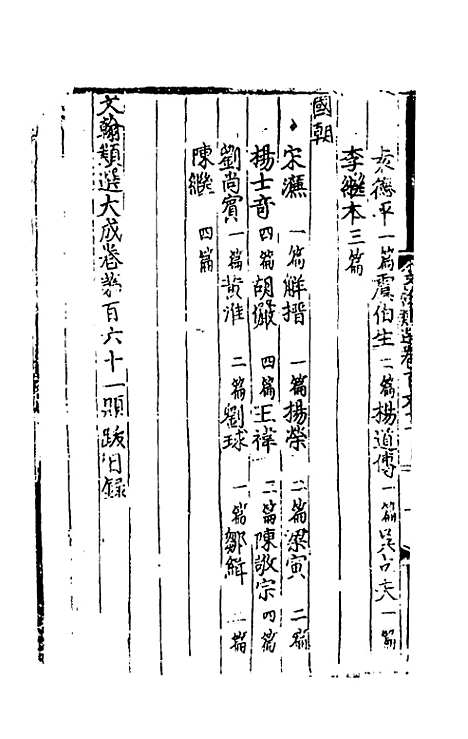 袁德平一篇虞伯生二篇楊道傳一篇吳一篇
李繼本三篇
國朝
宋濂一篇解搢一篇楊榮二篇梁寅二篇
楊士奇四篇胡儼四篇王禕二篇陳敬宗四篇
劉尚賓一篇黃淮二篇劉球一篇鄒緝二篇
陳繼四篇
文翰類選大成卷第百六十一題跋目錄